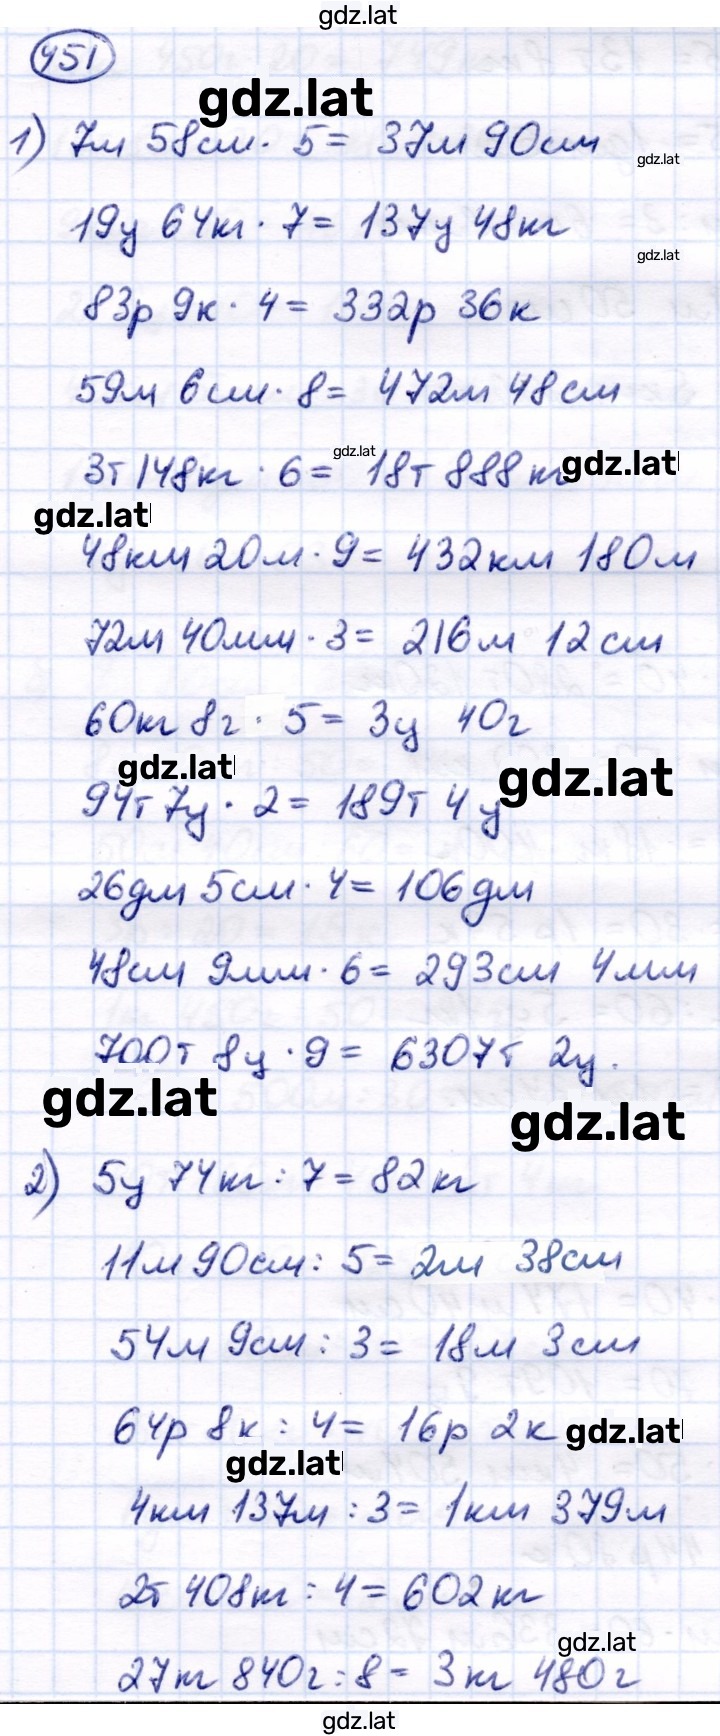 gdz.lat
451
gdz.lat
1) 7м 58см · 5 = 37м 90см
gdz.lat
19ц 64кг · 7 = 137ц 48кг
gdz.lat
83р 9к · 4 = 332р 36к
59м 6см · 8 = 472м 48см
gdz.lat
3т 148кг · 6 = 18т 888кг
gdz.lat
gdz.lat
48км 20м · 9 = 432км 180м
72м 40мм · 3 = 216м 12см
60кг 8г · 5 = 3ц 40г
gdz.lat
gdz.lat
94т 7ц · 2 = 189т 4ц
26дм 5см · 4 = 106дм
48см 9мм · 6 = 293см 4мм
700т 8ц · 9 = 6307т 2ц.
gdz.lat
gdz.lat
2) 5ц 74кг : 7 = 82кг
11м 90см : 5 = 2м 38см
54м 9см : 3 = 18м 3см
64р 8к : 4 = 16р 2к
gdz.lat
gdz.lat
4км 137м : 3 = 1км 379м
2т 408кг : 4 = 602кг
gdz.lat
27кг 840г : 8 = 3кг 480г
gdz.lat